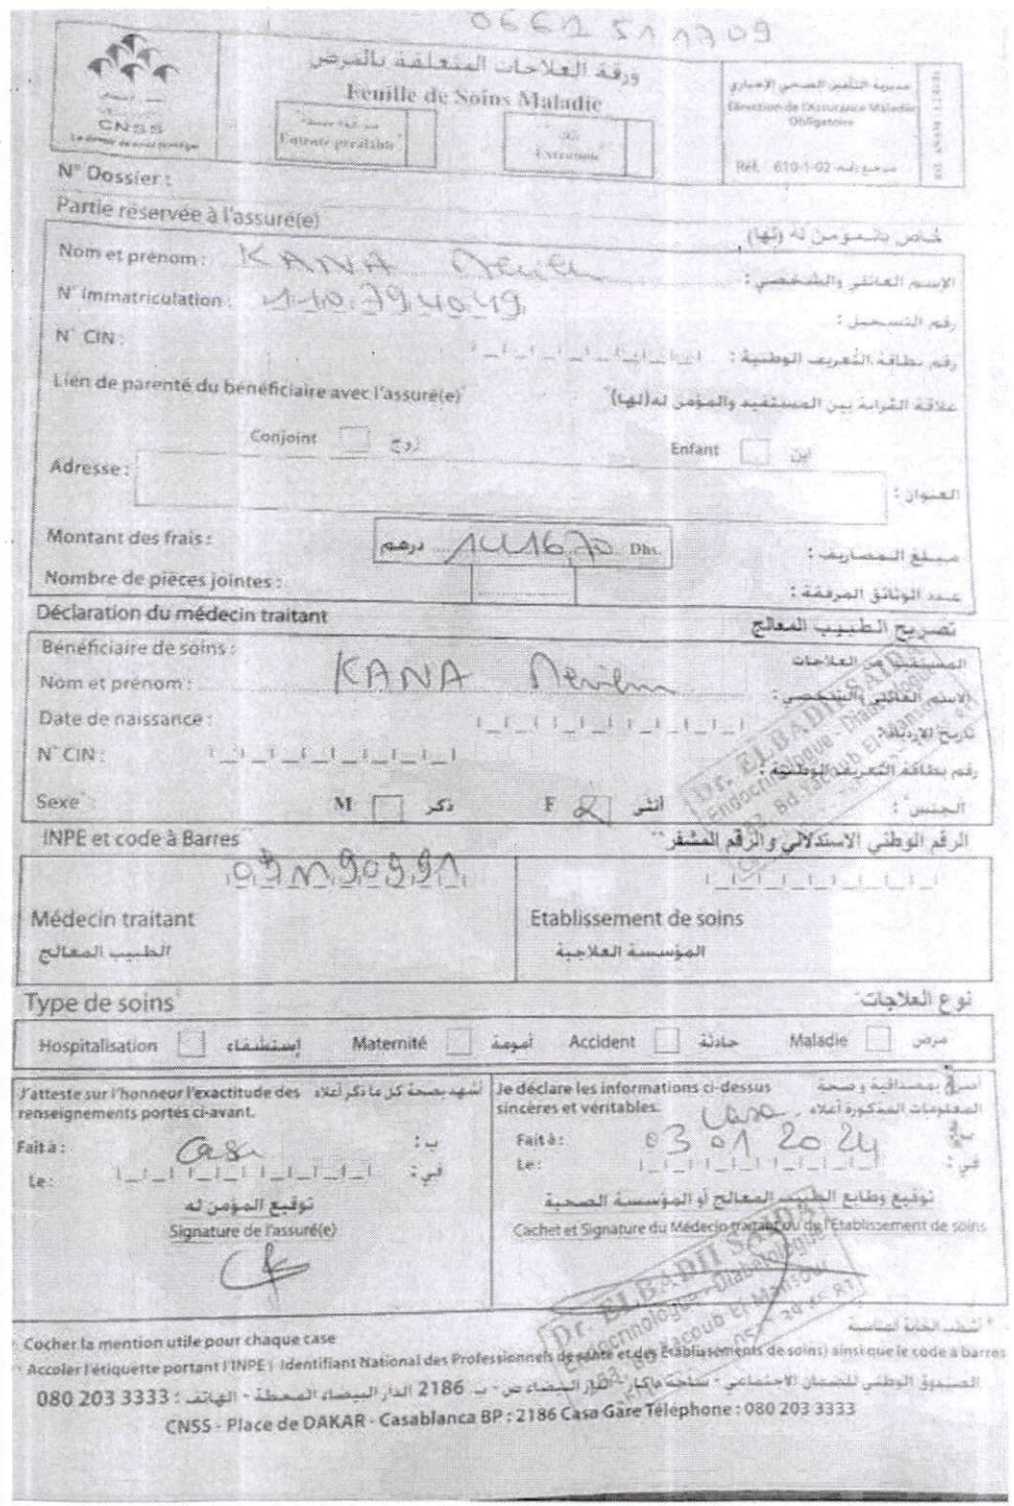 0661 51 1709
ورقة العلاجات المتعلقة بالمرض
Feuille de Soins Maladie
CNSS
Entente préalable
مديرية التأمين الصحي الإجباري
Direction de l'Assurance Maladie
Obligatoire
Réf. 610-1-02 مرجع رقم
N° Dossier :
Partie réservée à l'assuré(e)
خاص بالمؤمن له (لها)
Nom et prénom : KANA
الإسم العائلي والشخصي :
N° Immatriculation : 110794049
رقم التسجيل :
N° CIN :
رقم بطاقة التعريف الوطنية :
Lien de parenté du bénéficiaire avec l'assuré(e)*
علاقة القرابة بين المستفيد والمؤمن له(لها)*
Conjoint زوج Enfant ابن
Adresse : العنوان :
Montant des frais : درهم 1416,70 Dhs. مبلغ المصاريف :
Nombre de pièces jointes : عدد الوثائق المرفقة :
Déclaration du médecin traitant تصريح الطبيب المعالج
Bénéficiaire de soins : المستفيد من العلاجات
Nom et prénom : KANA الاسم العائلي والشخصي :
Date de naissance : تاريخ الازدياد :
N° CIN : رقم بطاقة التعريف الوطنية :
Sexe* M ذكر F أنثى الجنس* :
Dr. ELBADII SAIDA
Endocrinologue - Diabétologue
Bd. Yacoub El Mansour
INPE et code à Barres** الرقم الوطني الاستدلالي والرقم المشفر**
091190991
Médecin traitant Etablissement de soins
الطبيب المعالج المؤسسة العلاجية
Type de soins* نوع العلاجات*
Hospitalisation إستشفاء Maternité أمومة Accident حادثة Maladie مرض
J'atteste sur l'honneur l'exactitude des renseignements portés ci-avant.
أشهد بصحة كل ما ذكر أعلاه
Je déclare les informations ci-dessus sincères et véritables.
أصرح بمصداقية وصحة المعلومات المذكورة أعلاه
Fait à : Casa ب :
Le : في :
Fait à : Casa ب :
Le : 03 01 2024 في :
توقيع المؤمن له
Signature de l'assuré(e)
توقيع وطابع الطبيب المعالج أو المؤسسة الصحية
Cachet et Signature du Médecin traitant ou de l'Etablissement de soins
Dr. ELBADII SAIDA
Endocrinologue - Diabétologue
Bd. Yacoub El Mansour
* Cocher la mention utile pour chaque case * أشطب الخانة المناسبة
** Accoler l'étiquette portant l'INPE ( Identifiant National des Professionnels de santé et des Etablissements de soins) ainsi que le code à barres
الصندوق الوطني للضمان الاجتماعي - ساحة داكار - الدار البيضاء ص - ب 2186 الدار البيضاء المحطة - الهاتف : 080 203 3333
CNSS - Place de DAKAR - Casablanca BP : 2186 Casa Gare Téléphone : 080 203 3333